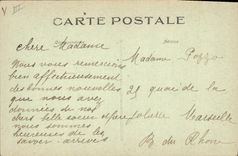 V III
CARTE POSTALE
Chere Madame
Nous vous remercions
bien affectueusement
des bonnes nouvelles
que nous avez
données de nos
chers
nous sommes
heureuses de les
savoir arrivés
Madame Pozzo
21 quai de la
Joliette Marseille
B. du Rhone